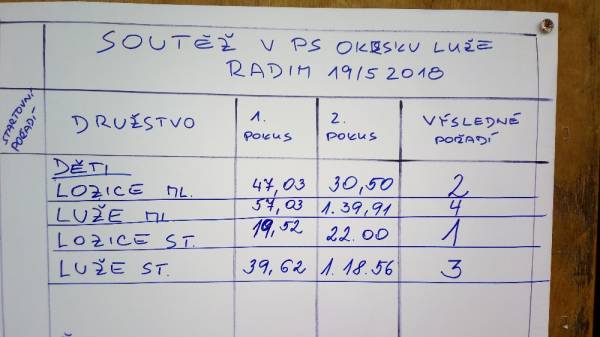 SOUTĚŽ V PS OKRSKU LUŽE
RADIM 19/5 2018
STARTOVNÍ POŘADÍ
DRUŽSTVO 1. POKUS 2. POKUS VÝSLEDNÉ POŘADÍ
DĚTI
LOZICE ML. 47,03 30,50 2
LUŽE ML. 57,03 1.39,91 4
LOZICE ST. 19,52 22.00 1
LUŽE ST. 39,62 1.18.56 3